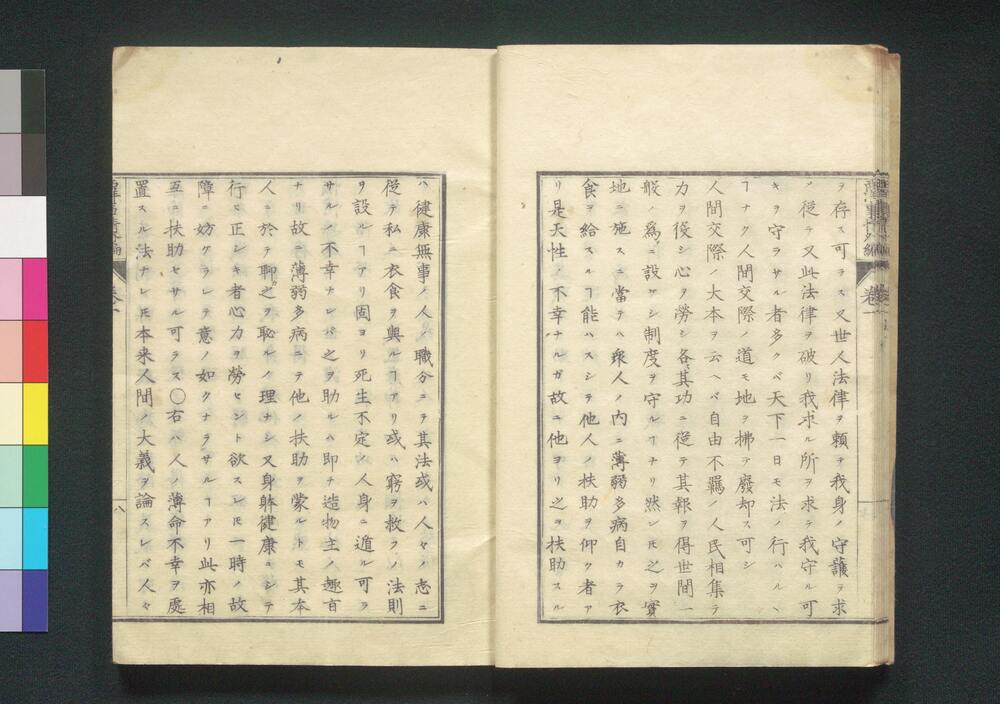 ヲ存ス可ラス又世人法律ヲ頼テ我身ノ守護ヲ求
ノ従ラ又此法律ヲ破リ我求ル所ヲ求テ我守ル可
キヲ守ラサル者多クバ天下一日モ法ノ行ハルヽ
ヿナク人間交際ノ道モ地ヲ拂テ廢却ス可シ
人間交際ノ大本ヲ云ヘバ自由不羈ノ人民相集テ
力ヲ役シ心ヲ勞シ各其功ニ從テ其報ヲ得世間一
般ノ爲ニ設ケシ制度ヲ守ルヿナリ然シ𪜈之ヲ實
地ニ施スニ當テハ衆人ノ内ニ薄弱多病自カラ衣
食ヲ給スルヿ能ハスシテ他人ノ扶助ヲ仰ク者ア
リ是天性ノ不幸ナルガ故ニ他ヨリ之ヲ扶助スル
ハ健康無事ノ人ノ職分ニテ其法或ハ人々ノ志ニ
從テ私ニ衣食ヲ與ルヿアリ或ハ窮ヲ救フノ法則
ヲ設ルヿアリ固ヨリ死生不定ノ人身ニ遁ル可ラ
サルノ不幸ナレバ之ヲ助ルハ即チ造物主ノ趣旨
ナリ故ニ薄弱多病ニテ他ノ扶助ヲ蒙ルトモ其本
人ニ於テ聊之ヲ恥ルノ理ナシ又身躰健康ニシテ
行ヒ正シキ者心力ヲ勞セント欲スレ𪜈一時ノ故
障ニ妨クラレテ意ノ如クナラサルヿアリ此亦相
互ニ扶助セサル可ラス〇右ハ人ノ薄命不幸ヲ處
置スル法ナレ𪜈本来人間ノ大義ヲ論スレバ人々
八